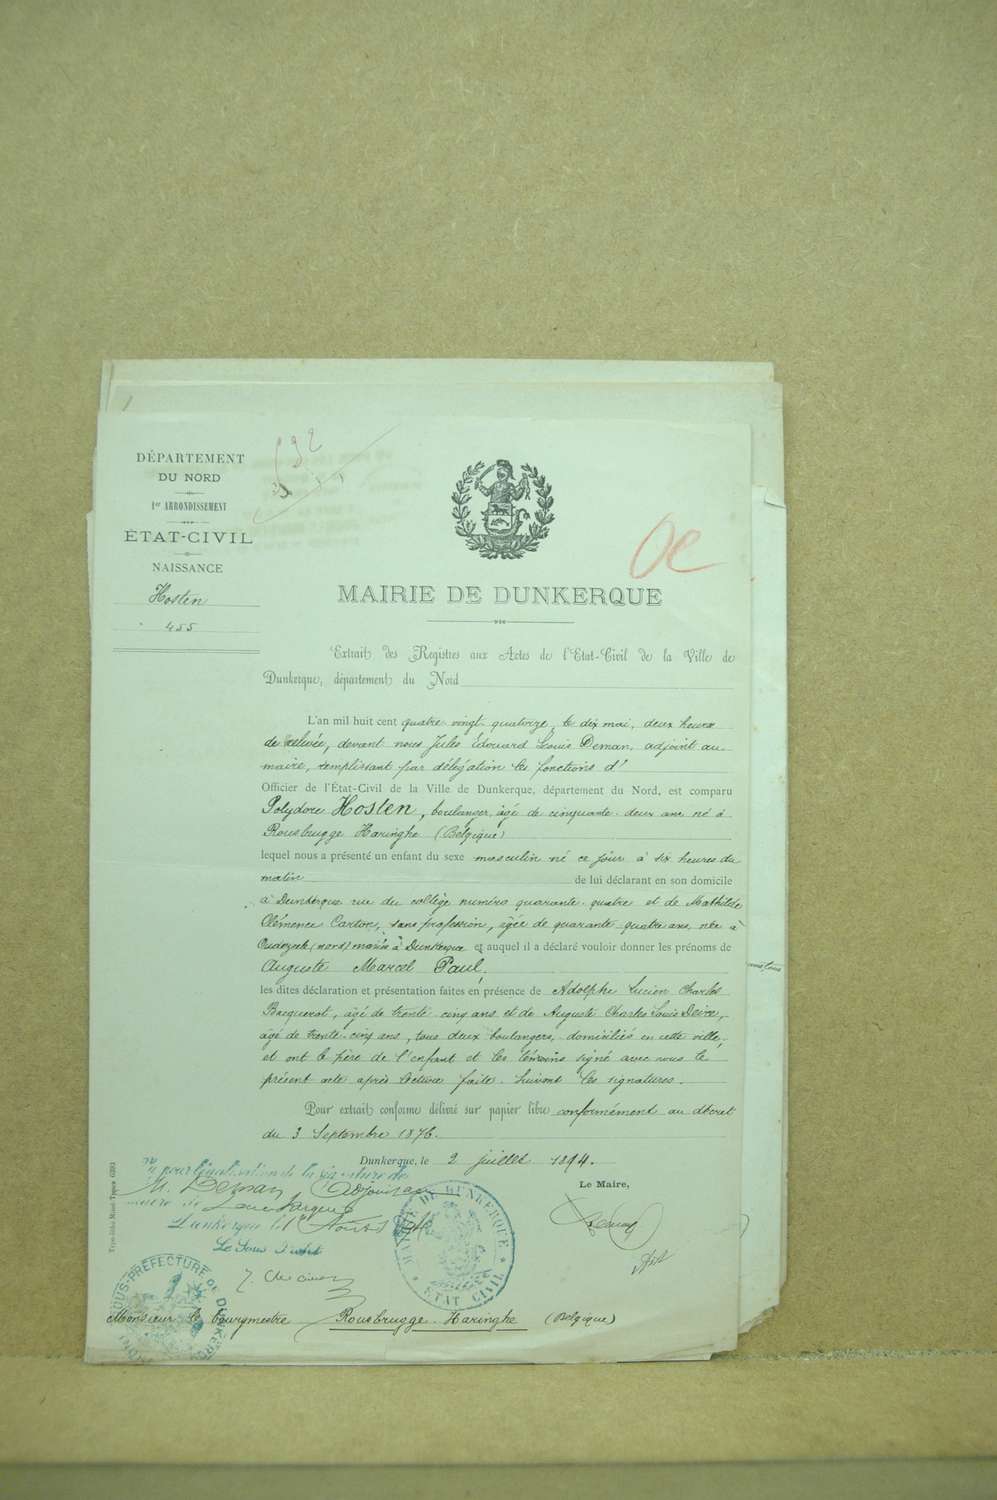 DÉPARTEMENT
DU NORD
1er ARRONDISSEMENT
ÉTAT-CIVIL
NAISSANCE
Hosten
455
592
Oc
MAIRIE DE DUNKERQUE
Extrait des Registres aux Actes de l'Etat-Civil de la Ville de
Dunkerque, département du Nord
L'an mil huit cent quatre vingt quatorze, le dix mai, deux heures
de relevée, devant nous Jules Edouard Louis Deman, adjoint au
maire, remplissant par délégation les fonctions d'
Officier de l'État-Civil de la Ville de Dunkerque, département du Nord, est comparu
Polydore Hosten, boulanger, âgé de cinquante deux ans né à
Rousbrugge Haringhe (Belgique)
lequel nous a présenté un enfant du sexe masculin né ce jour à six heures du
matin de lui déclarant en son domicile
à Dunkerque rue du collège numéro quarante quatre et de Mathilde
Clémence Carton, sans profession, âgée de quarante quatre ans, née à
Oudezeele (nord) mariés à Dunkerque et auquel il a déclaré vouloir donner les prénoms de
Auguste Marcel Paul,
les dites déclaration et présentation faites en présence de Adolphe Lucien Charles
Bacquerot, âgé de trente cinq ans et de Auguste Charles Louis
âgé de trente cinq ans, tous deux boulangers, domiciliés en cette ville,
et ont le père de l'enfant et les témoins signé avec nous le
présent acte après lecture faite. Suivent les signatures.
Pour extrait conforme délivré sur papier libre conformément au décret
du 3 Septembre 1876.
Dunkerque, le 2 juillet 1894.
Le Maire,
Vu pour légalisation de la signature de
M. Deman Adjoint au
maire de Dunkerque
Dunkerque le 1er Août 1894
Le Sous Préfet
MAIRIE DE DUNKERQUE
ETAT CIVIL
SOUS-PRÉFECTURE DE DUNKERQUE
Monsieur le bourgmestre Rousbrugge-Haringhe (Belgique)